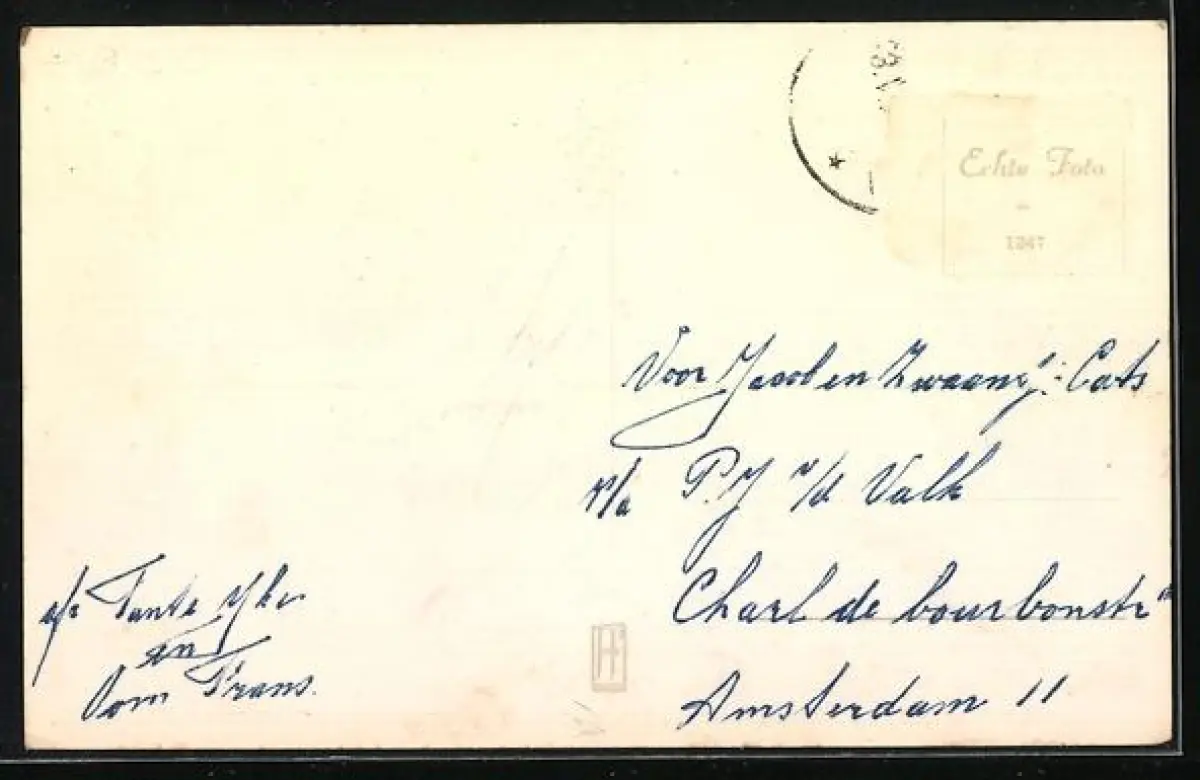 Echte Foto
1247
Voor Jacob en Zwaantj: Cats
p/a P.J v/d Valk
Charl de bourbonstr
Amsterdam 11
a/z Tante
en
Oom Frans.